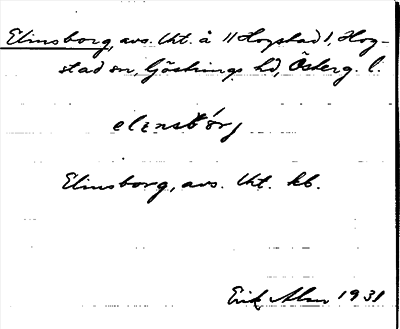 Elinsborg, avs. lht. å 11 Hogstad 1, Hog-
stad sn, Göstrings hd, Österg. l.
elɪnsbórj
Elinsborg, avs. lht. kb.
Erik Alm 1931